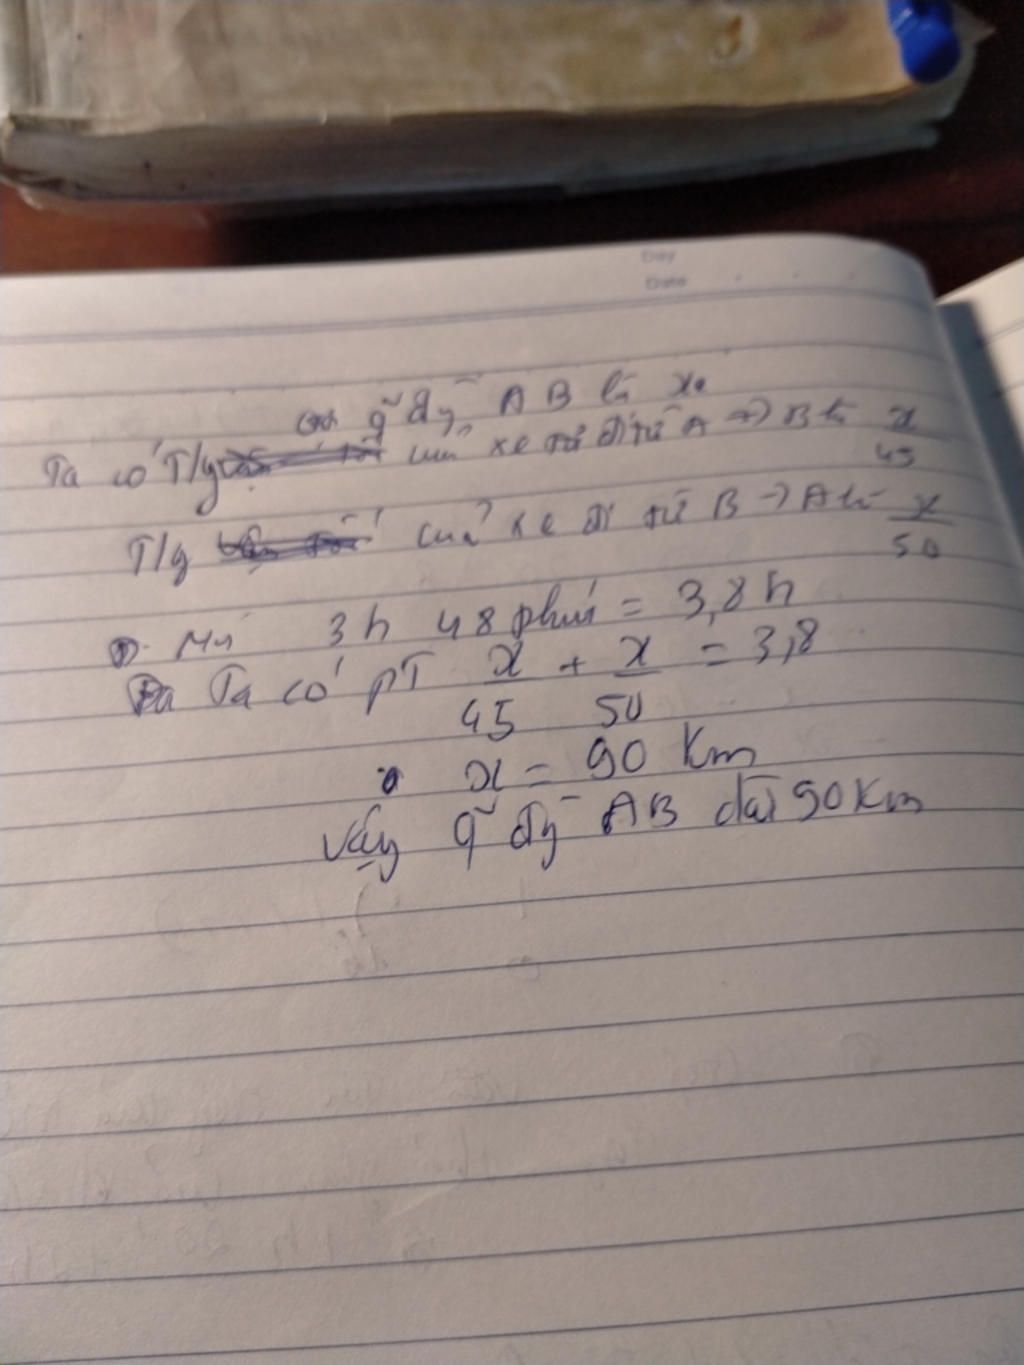 Day
Date
Gọi q̃ đg̃ AB là x.
Ta có T/g của xe từ đi từ A → B là x/45
T/g của xe đi từ B → A là x/50
Mà 3h 48 phút = 3,8h
Ta có PT x/45 + x/50 = 3,8
x = 90 Km
Vậy q̃ đg̃ AB dài 90 Km